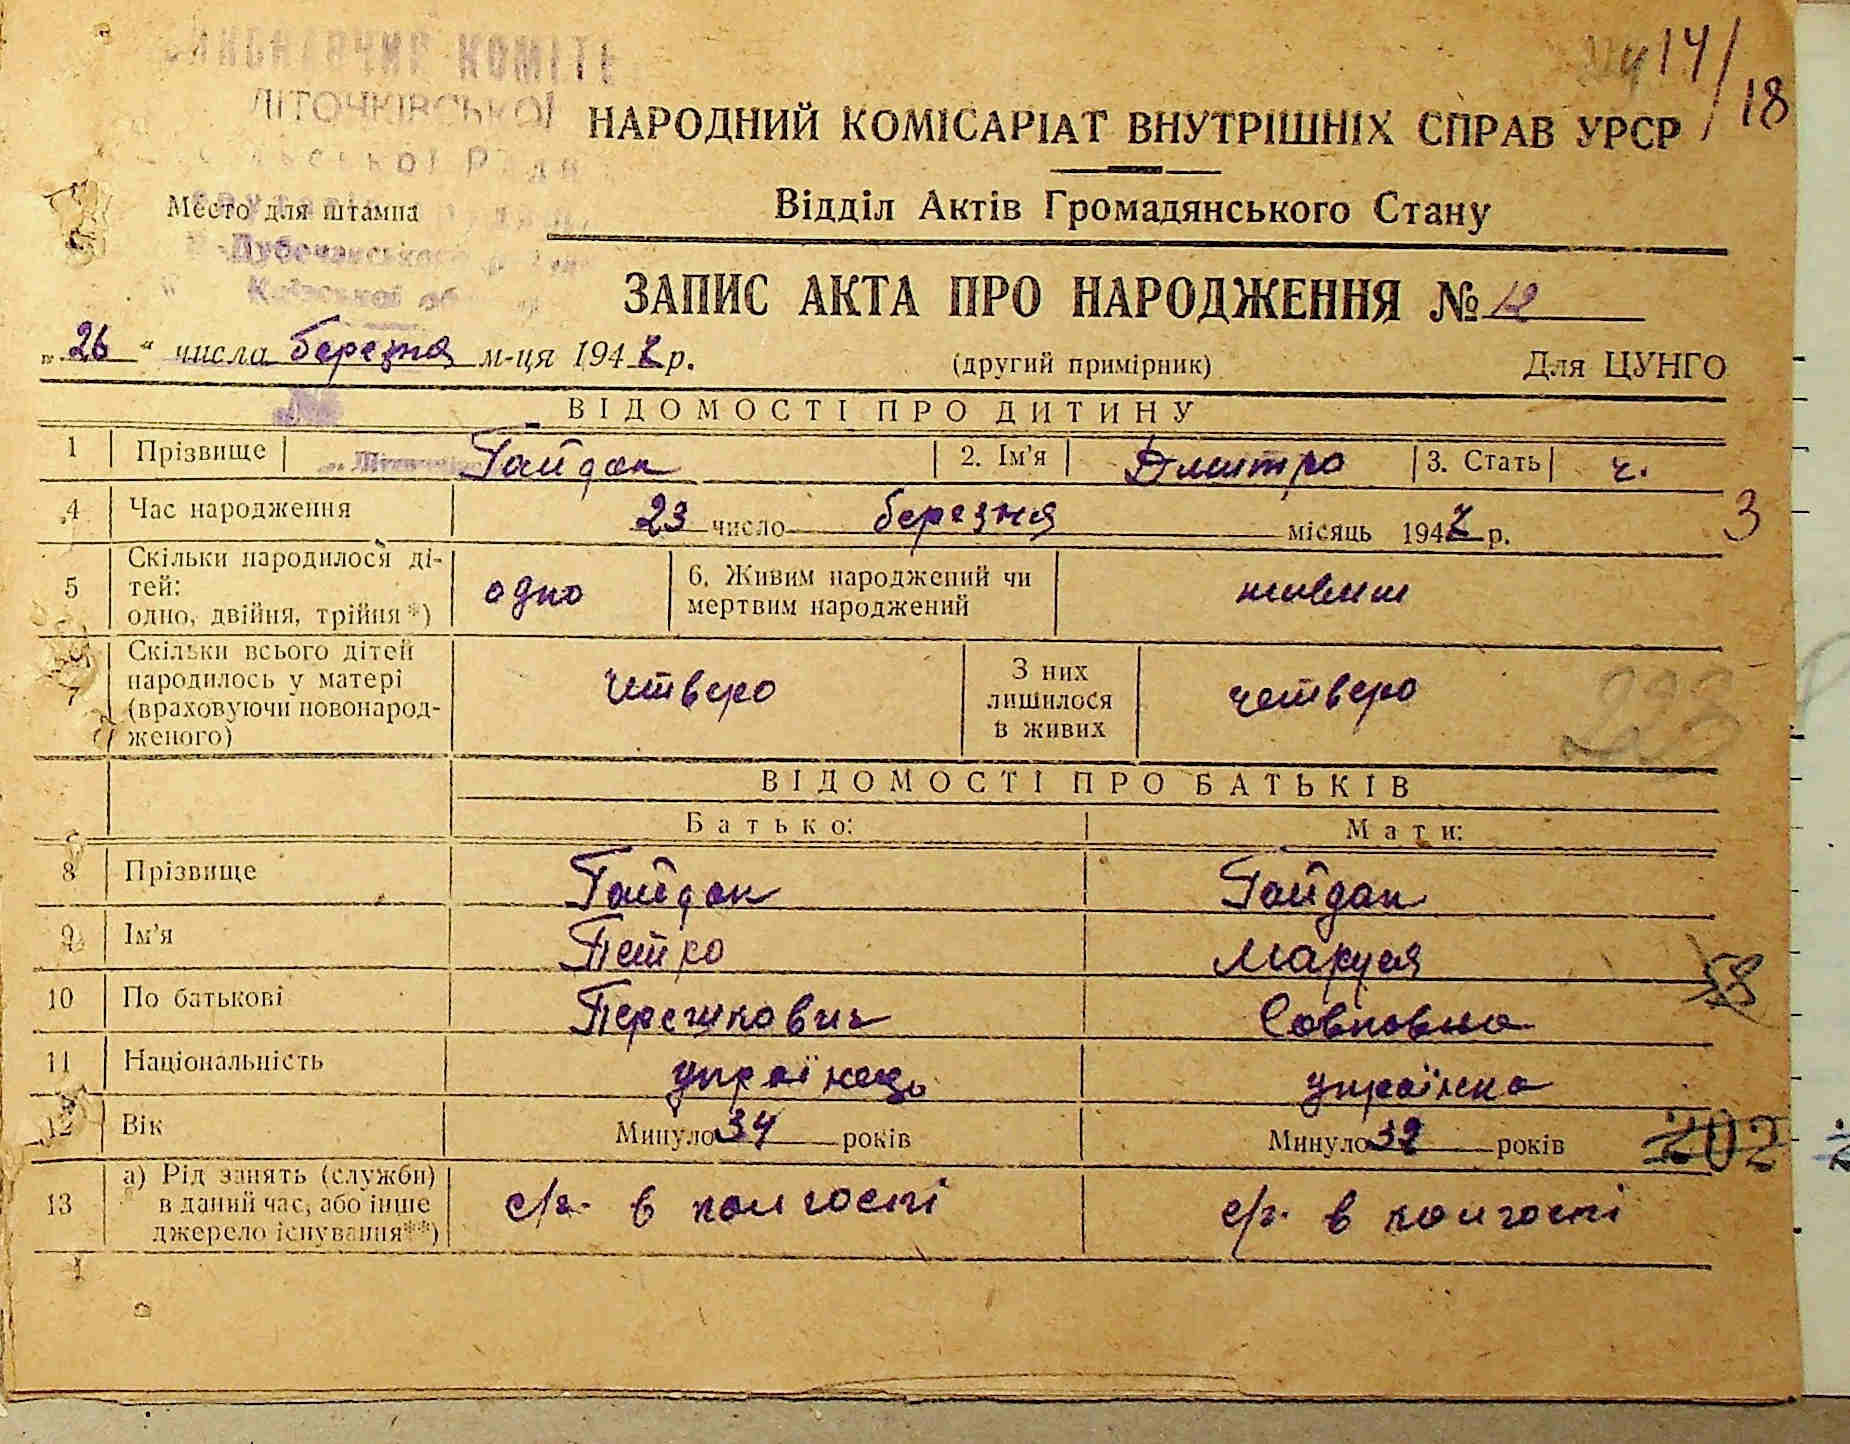 ВИКОНАВЧИЙ КОМІТЕ
ЛІТОЧКІВСЬКОЇ
Ради
Київської
14/18
НАРОДНИЙ КОМІСАРІАТ ВНУТРІШНІХ СПРАВ УРСР
Место для штампа
Відділ Актів Громадянського Стану
ЗАПИС АКТА ПРО НАРОДЖЕННЯ № 12
„26“ числа березня м-ця 1947 р. (другий примірник) Для ЦУНГО
ВІДОМОСТІ ПРО ДИТИНУ
1 Прізвище Гайдак 2. Ім'я Дмитро 3. Стать ч.
4 Час народження 23 число березня місяць 1947 р. 3
5 Скільки народилося ді-
тей:
одно, двійня, трійня*) одно 6. Живим народжений чи
мертвим народжений живим
7 Скільки всього дітей
народилось у матері
(враховуючи новонарод-
женого) четверо З них
лишилося
в живих четверо
ВІДОМОСТІ ПРО БАТЬКІВ
Батько: Мати:
8 Прізвище Гайдак Гайдак
9 Ім'я Петро Маруся
10 По батькові
11 Національність українець українка
12 Вік Минуло 34 років Минуло 32 років 202
13 а) Рід занять (служби)
в даний час, або інше
джерело існування**) с/г. в колгоспі с/г. в колгоспі